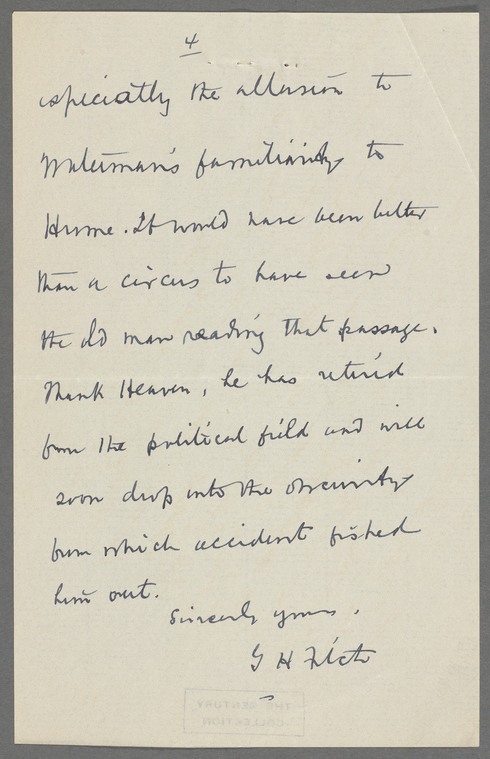 4
especially the allusion to
Waterman's familiarity to
Hume. It would have been better
than a circus to have seen
the old man reading that passage.
Thank Heaven, he has retired
from the political field and will
soon drop into the obscurity
from which accident fished
him out.
Sincerely yours,
G H Fitch
THE CENTURY
COLLECTION